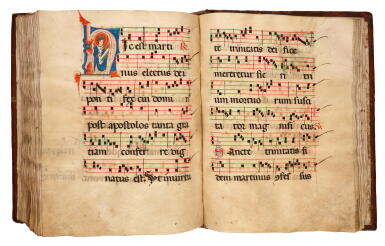 Hic est marti
nus electus dei
pon ti fex cui domi n
post apostolos tanta gra
tiam conferre dig
natus est. Ut in virtu
te trinitatis dei fice
meretretur fie ri tri
um mortuo rum susci
ta tor mag nifi cus.
Sancte trinitatis fi
dem martinus 9fes sus